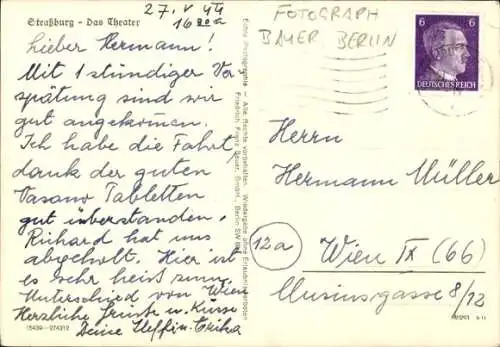 Straßburg - Das Theater
27. V 44
16 20 a
Lieber Hermann!
Mit 1 stündiger Ver
spätung sind wir
gut angekommen.
Ich habe die Fahrt
dank der guten
Vasano Tabletten
gut überstanden.
Richard hat uns
abgeholt. Hier ist
es sehr heiß zum
Unterschied von Wien
Herzliche Grüße u. Küsse
Deine Erika
15439-274312
Echte Photographie - Alle Rechte vorbehalten. Wiedergabe ohne Erlaubnis verboten
Friedrich Franz Bauer, GmbH., Berlin SW
FOTOGRAPH
BAUER BERLIN
6 6
DEUTSCHES REICH
Herrn
Hermann Müller
12a
Wien IX (66)
8/12